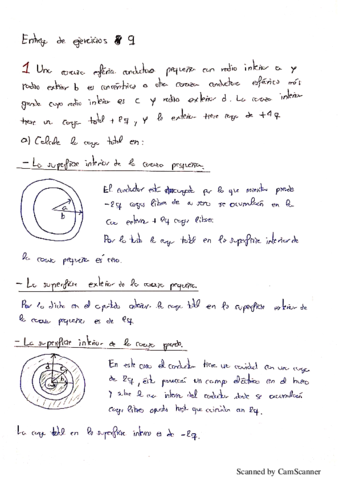 Entrega de ejercicios 9
1 Una coraza esférica conductora pequeña con radio interior a y
radio exterior b es concéntrica a otra coraza conductora esférica más
grande cuyo radio interior es c y radio exterior d. La coraza interior
tiene una carga total +2q, y la exterior tiene carga de +4q
a) Calcule la carga total en:
- La superficie interior de la coraza pequeña.
a
b
El conductor está por lo que
-2q carga libre de a se acumularán en la
cara externa +2q cargas libres.
Por lo tanto la carga total en la superficie interior de
la coraza pequeña es cero.
- La superficie exterior de la coraza pequeña.
Por lo dicho en el apartado anterior la carga total en la superficie exterior de
la coraza pequeña es de 2q.
- La superficie interior de la coraza grande.
d
c
En este caso el conductor tiene una cavidad con una carga
de 2q, esta provocará un campo eléctrico en el hueco
y sobre la interna del conductor donde se acumularán
cargas libres hasta que 2q.
La carga total en la superficie interior es de -2q.
Scanned by CamScanner